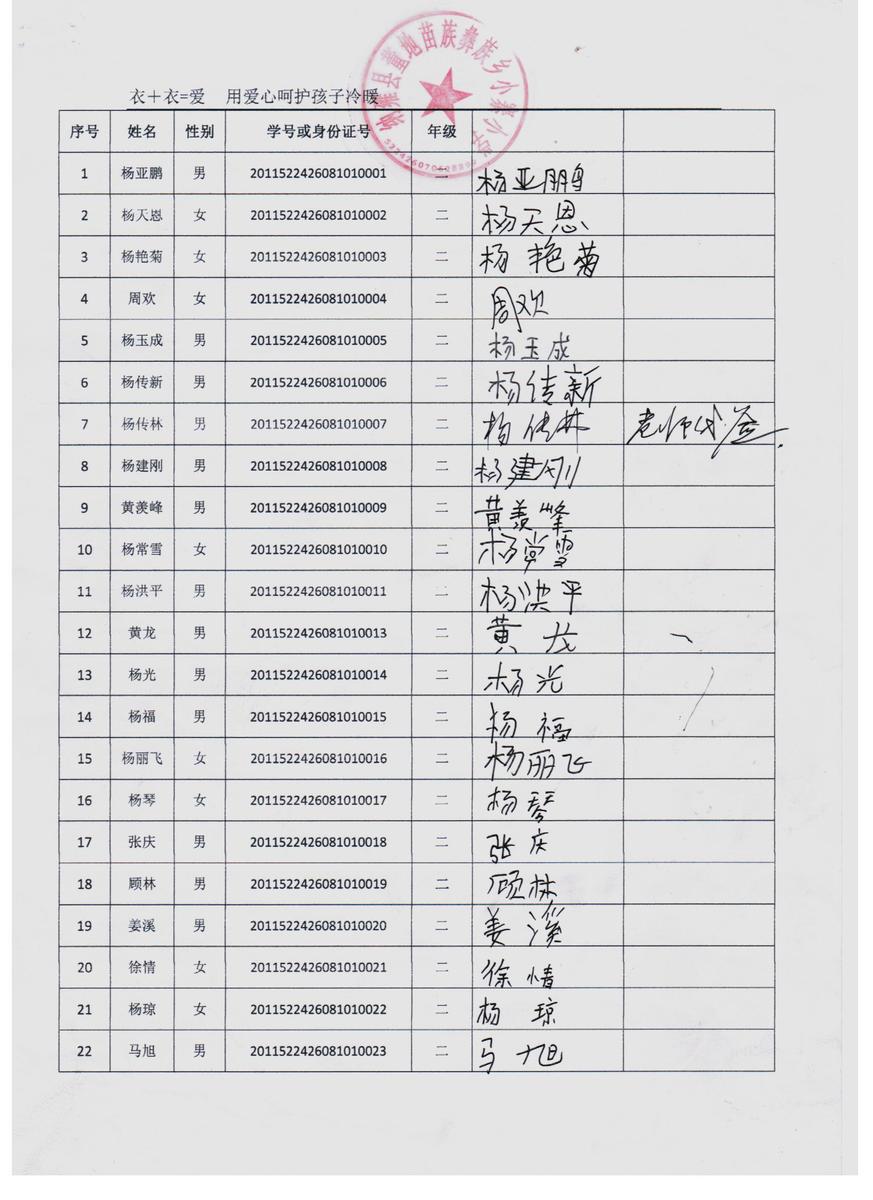 纳雍县董地苗族彝族乡小寨小学
衣+衣=爱 用爱心呵护孩子冷暖
序号 姓名 性别 学号或身份证号 年级
1 杨亚鹏 男 2011522426081010001 二 杨亚鹏
2 杨天恩 女 2011522426081010002 二 杨天恩
3 杨艳菊 女 2011522426081010003 二 杨艳菊
4 周欢 女 2011522426081010004 二 周欢
5 杨玉成 男 2011522426081010005 二 杨玉成
6 杨传新 男 2011522426081010006 二 杨传新
7 杨传林 男 2011522426081010007 二 杨传林 老师代签
8 杨建刚 男 2011522426081010008 二 杨建刚
9 黄羡峰 男 2011522426081010009 二 黄羡峰
10 杨常雪 女 2011522426081010010 二 杨常雪
11 杨洪平 男 2011522426081010011 二 杨洪平
12 黄龙 男 2011522426081010013 二 黄龙
13 杨光 男 2011522426081010014 二 杨光
14 杨福 男 2011522426081010015 二 杨福
15 杨丽飞 女 2011522426081010016 二 杨丽飞
16 杨琴 女 2011522426081010017 二 杨琴
17 张庆 男 2011522426081010018 二 张庆
18 顾林 男 2011522426081010019 二 顾林
19 姜溪 男 2011522426081010020 二 姜溪
20 徐情 女 2011522426081010021 二 徐情
21 杨琼 女 2011522426081010022 二 杨琼
22 马旭 男 2011522426081010023 二 马旭